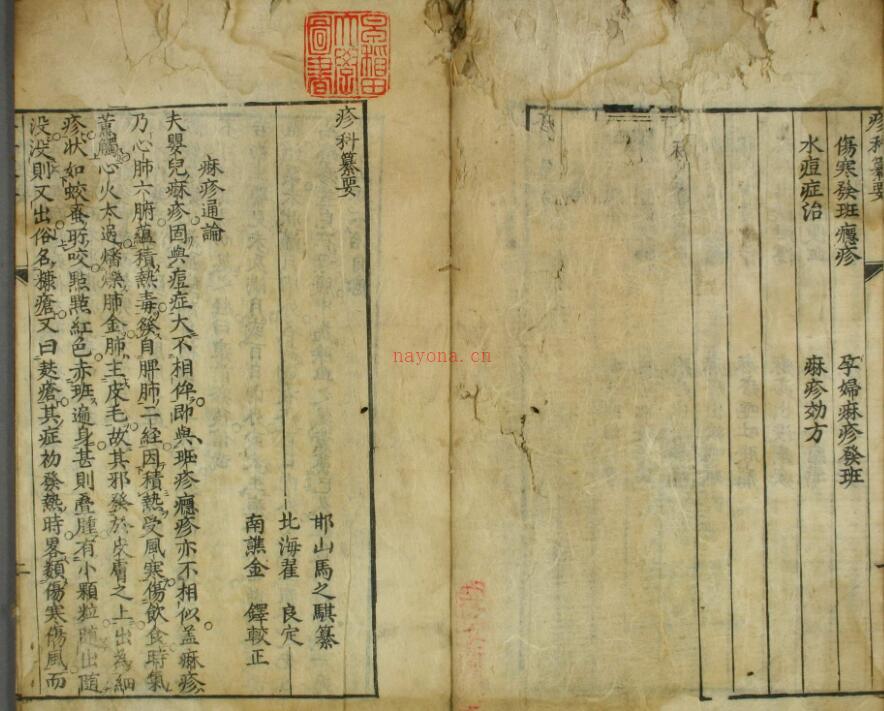 疹科纂要
傷寒發班癮疹　孕婦麻疹發班
水痘症治　麻疹効方
早稻田大學圖書
nayona.cn
疹科纂要
邯山馬之騏纂
北海翟　良定
南譙金　鐸較正
麻疹通論
夫嬰兒麻疹固與痘症大不相侔即與班疹癮疹亦不相似盖麻疹
乃心肺六腑蘊積熱毒發自脾肺二経因積熱受風寒傷飲食時氣
薰觸心火太過燔爍肺金肺主皮毛故其邪發於皮膚之上出為細
疹状如蚊蚤所咬點點紅色赤班遍身甚則叠腫有小顆粒随出隨
没没則又出俗名糠瘡又曰麩瘡其症初發熱時畧類傷寒傷風而